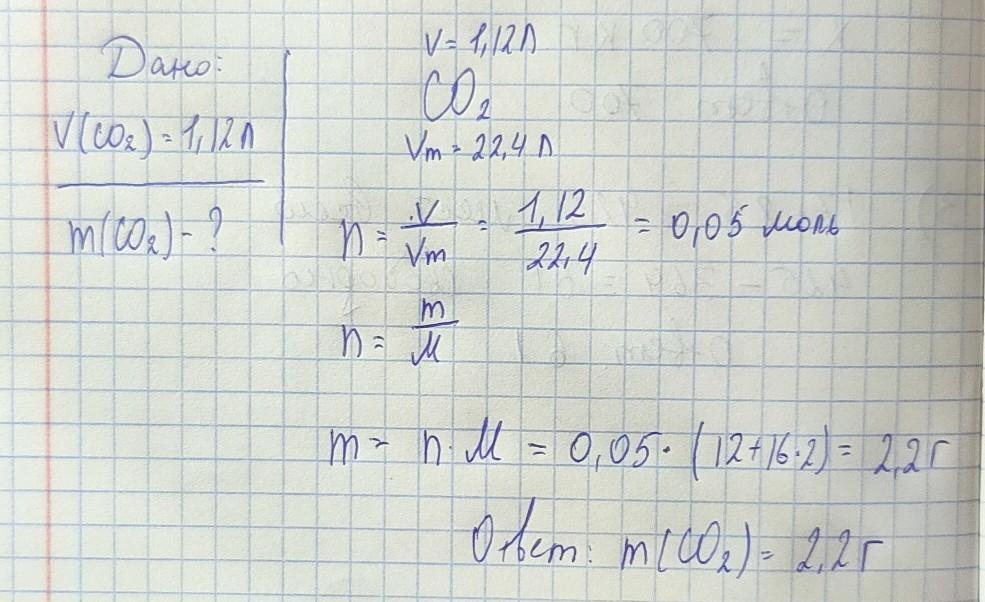 Дано:
V(CO₂) = 1,12 л
m(CO₂) - ?
V = 1,12 л
CO₂
Vm = 22,4 л
n = V/Vm = 1,12/22,4 = 0,05 моль
n = m/M
m = n · M = 0,05 · (12+16·2) = 2,2 г
Ответ: m(CO₂) = 2,2 г